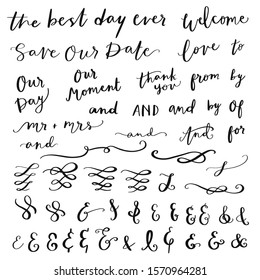 the best day ever welcome
Save Our Date love to
Our Day Our Moment thank you from by
and AND and by Of
mr + mrs and And for
and
& & & & & & & & & &
& & & & & & & & & &
shutterstock.com · 1570964281